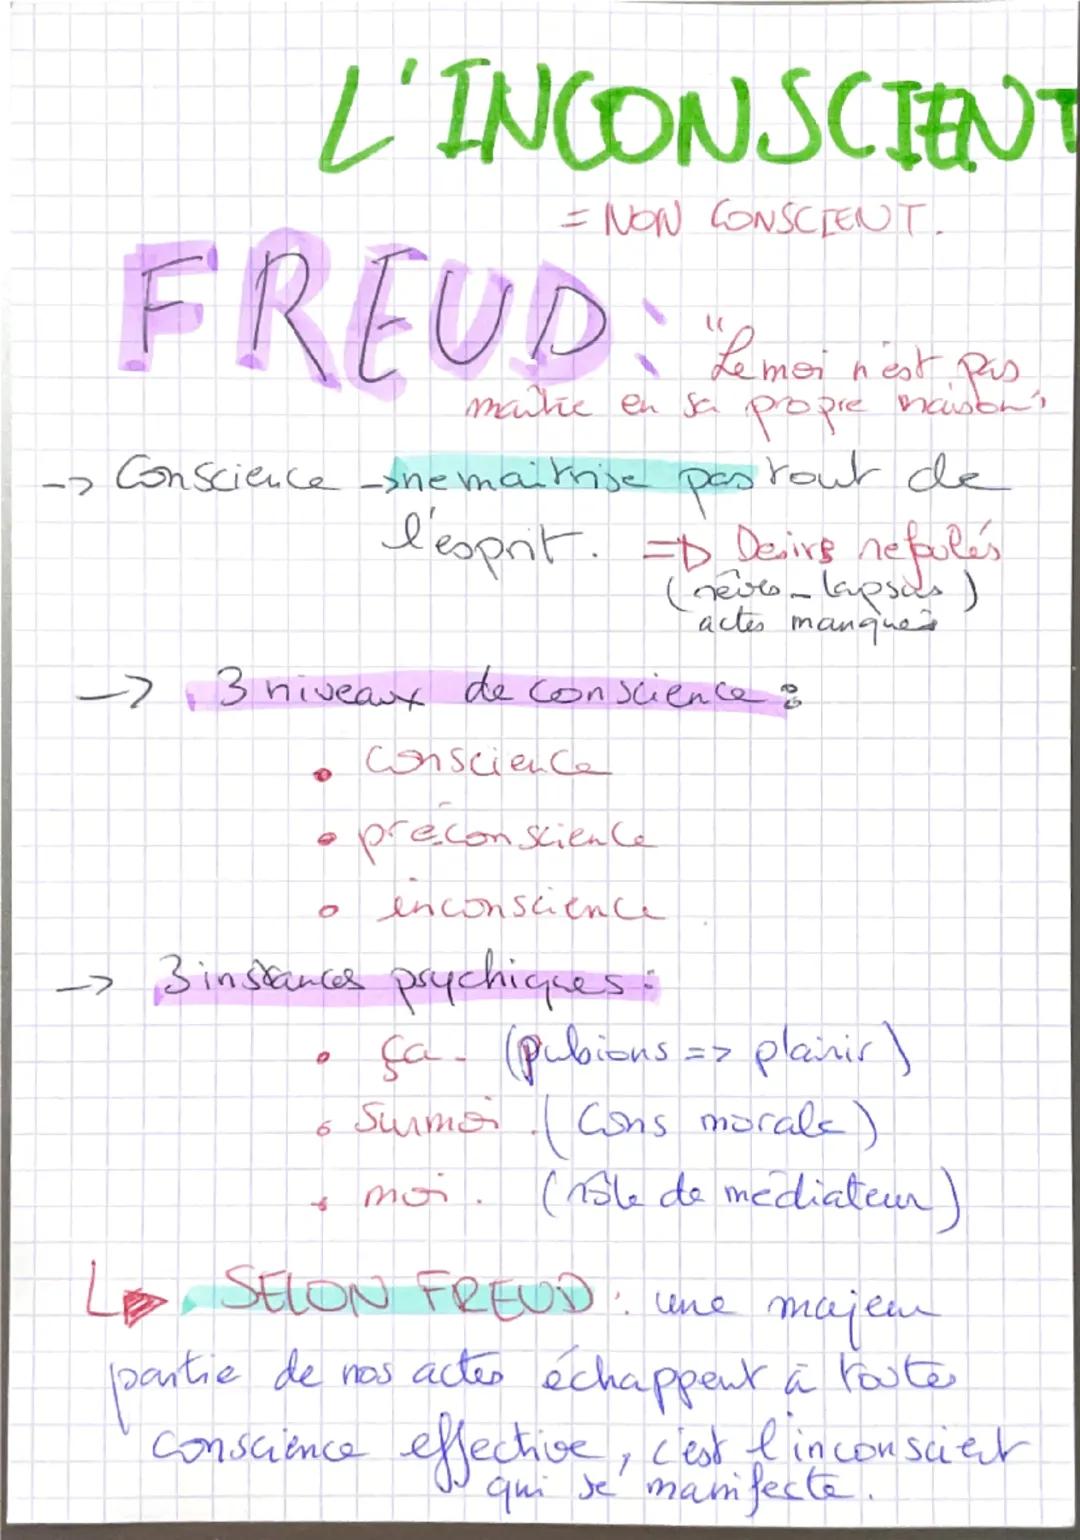 L'INCONSCIENT
= NON CONSCIENT.
FREUD: "Le moi n'est pas
maître en sa propre maison"
-> Conscience -> ne maitrise pas tout de
l'esprit. => Desirs refoulés
(rêves - lapsus)
actes manqués
-> 3 niveaux de conscience :
• conscience
• préconscience
• inconscience
-> 3 instances psychiques :
• ça - (pulsions => plaisir)
• Surmoi . (Cons morale)
• moi . (rôle de médiateur)
↳ SELON FREUD : une majeur
partie de nos actes échappent à toutes
conscience effective, c'est l'inconscient
qui se manifeste.